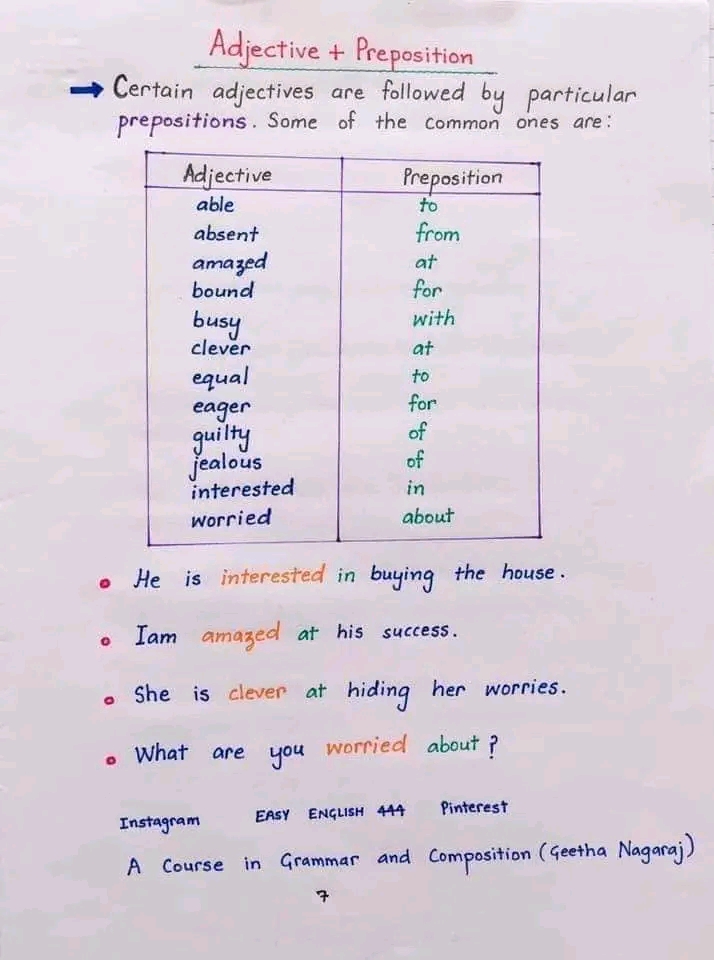 Adjective + Preposition
→ Certain adjectives are followed by particular
prepositions. Some of the common ones are:
Adjective Preposition
able to
absent from
amazed at
bound for
busy with
clever at
equal to
eager for
guilty of
jealous of
interested in
worried about
• He is interested in buying the house.
• Iam amazed at his success.
• She is clever at hiding her worries.
• What are you worried about?
Instagram EASY ENGLISH 444 Pinterest
A Course in Grammar and Composition (Geetha Nagaraj)
7